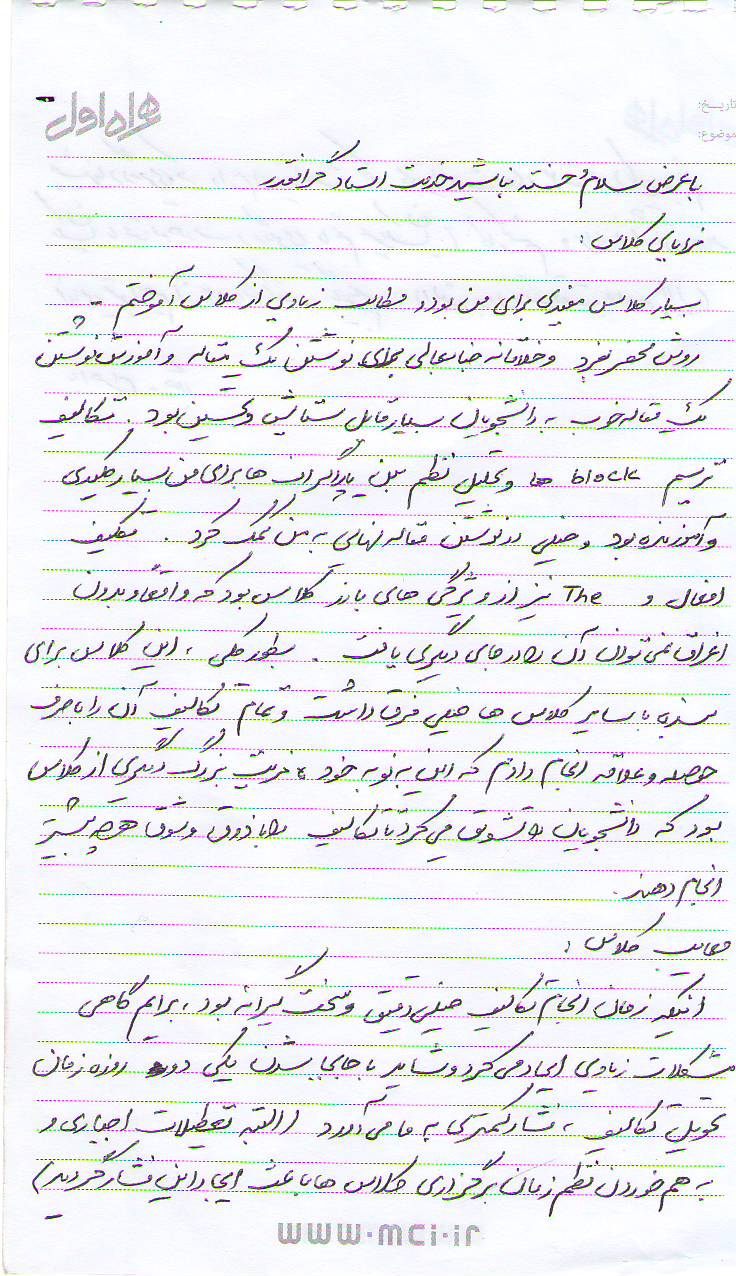 همراه اول
تاریخ:
موضوع:
با عرض سلام و خسته نباشید خدمت استاد گرانقدر
مزایای کلاس :
بسیار کلاس مفیدی برای من بود و مطالب زیادی از کلاس آموختم .
روش منحصر بفرد و خلاقانه جنابعالی برای نوشتن یک مقاله و آموزش نوشتن
یک مقاله خوب به دانشجویان بسیار قابل ستایش و تحسین بود . تکالیف
ترسیم block ها و تحلیل نظم بین پاراگراف ها برای من بسیار کلیدی
و آموزنده بود و خیلی در نوشتن مقاله نهایی به من کمک کرد . تکلیف
افعال و The نیز از ویژگی های بارز کلاس بود که واقعا و بدون
اغراق نمی توان آن را در جای دیگری یافت . بطور کلی ، این کلاس برای
بنده با سایر کلاس ها خیلی فرق داشت و تمام تکالیف آن را با صرف
حوصله و علاقه انجام دادم که این به نوبه خود مزیت بزرگ دیگری از کلاس
بود که دانشجویان را تشویق می کرد تا تکالیف را با ذوق و شوق هرچه بیشتر
انجام دهند .
معایب کلاس :
اینکه زمان انجام تکالیف خیلی دقیق و سخت گیرانه بود ، برایم گاهی
مشکلات زیادی ایجاد می کرد و شاید با جابجا شدن یکی دو روزه زمان
تحویل تکالیف ، فشار کمتری به ما می آورد (البته تعطیلات اجباری و
به هم خوردن نظم زمان برگزاری کلاس ها باعث ایجاد این فشار گردید)
www.mci.ir